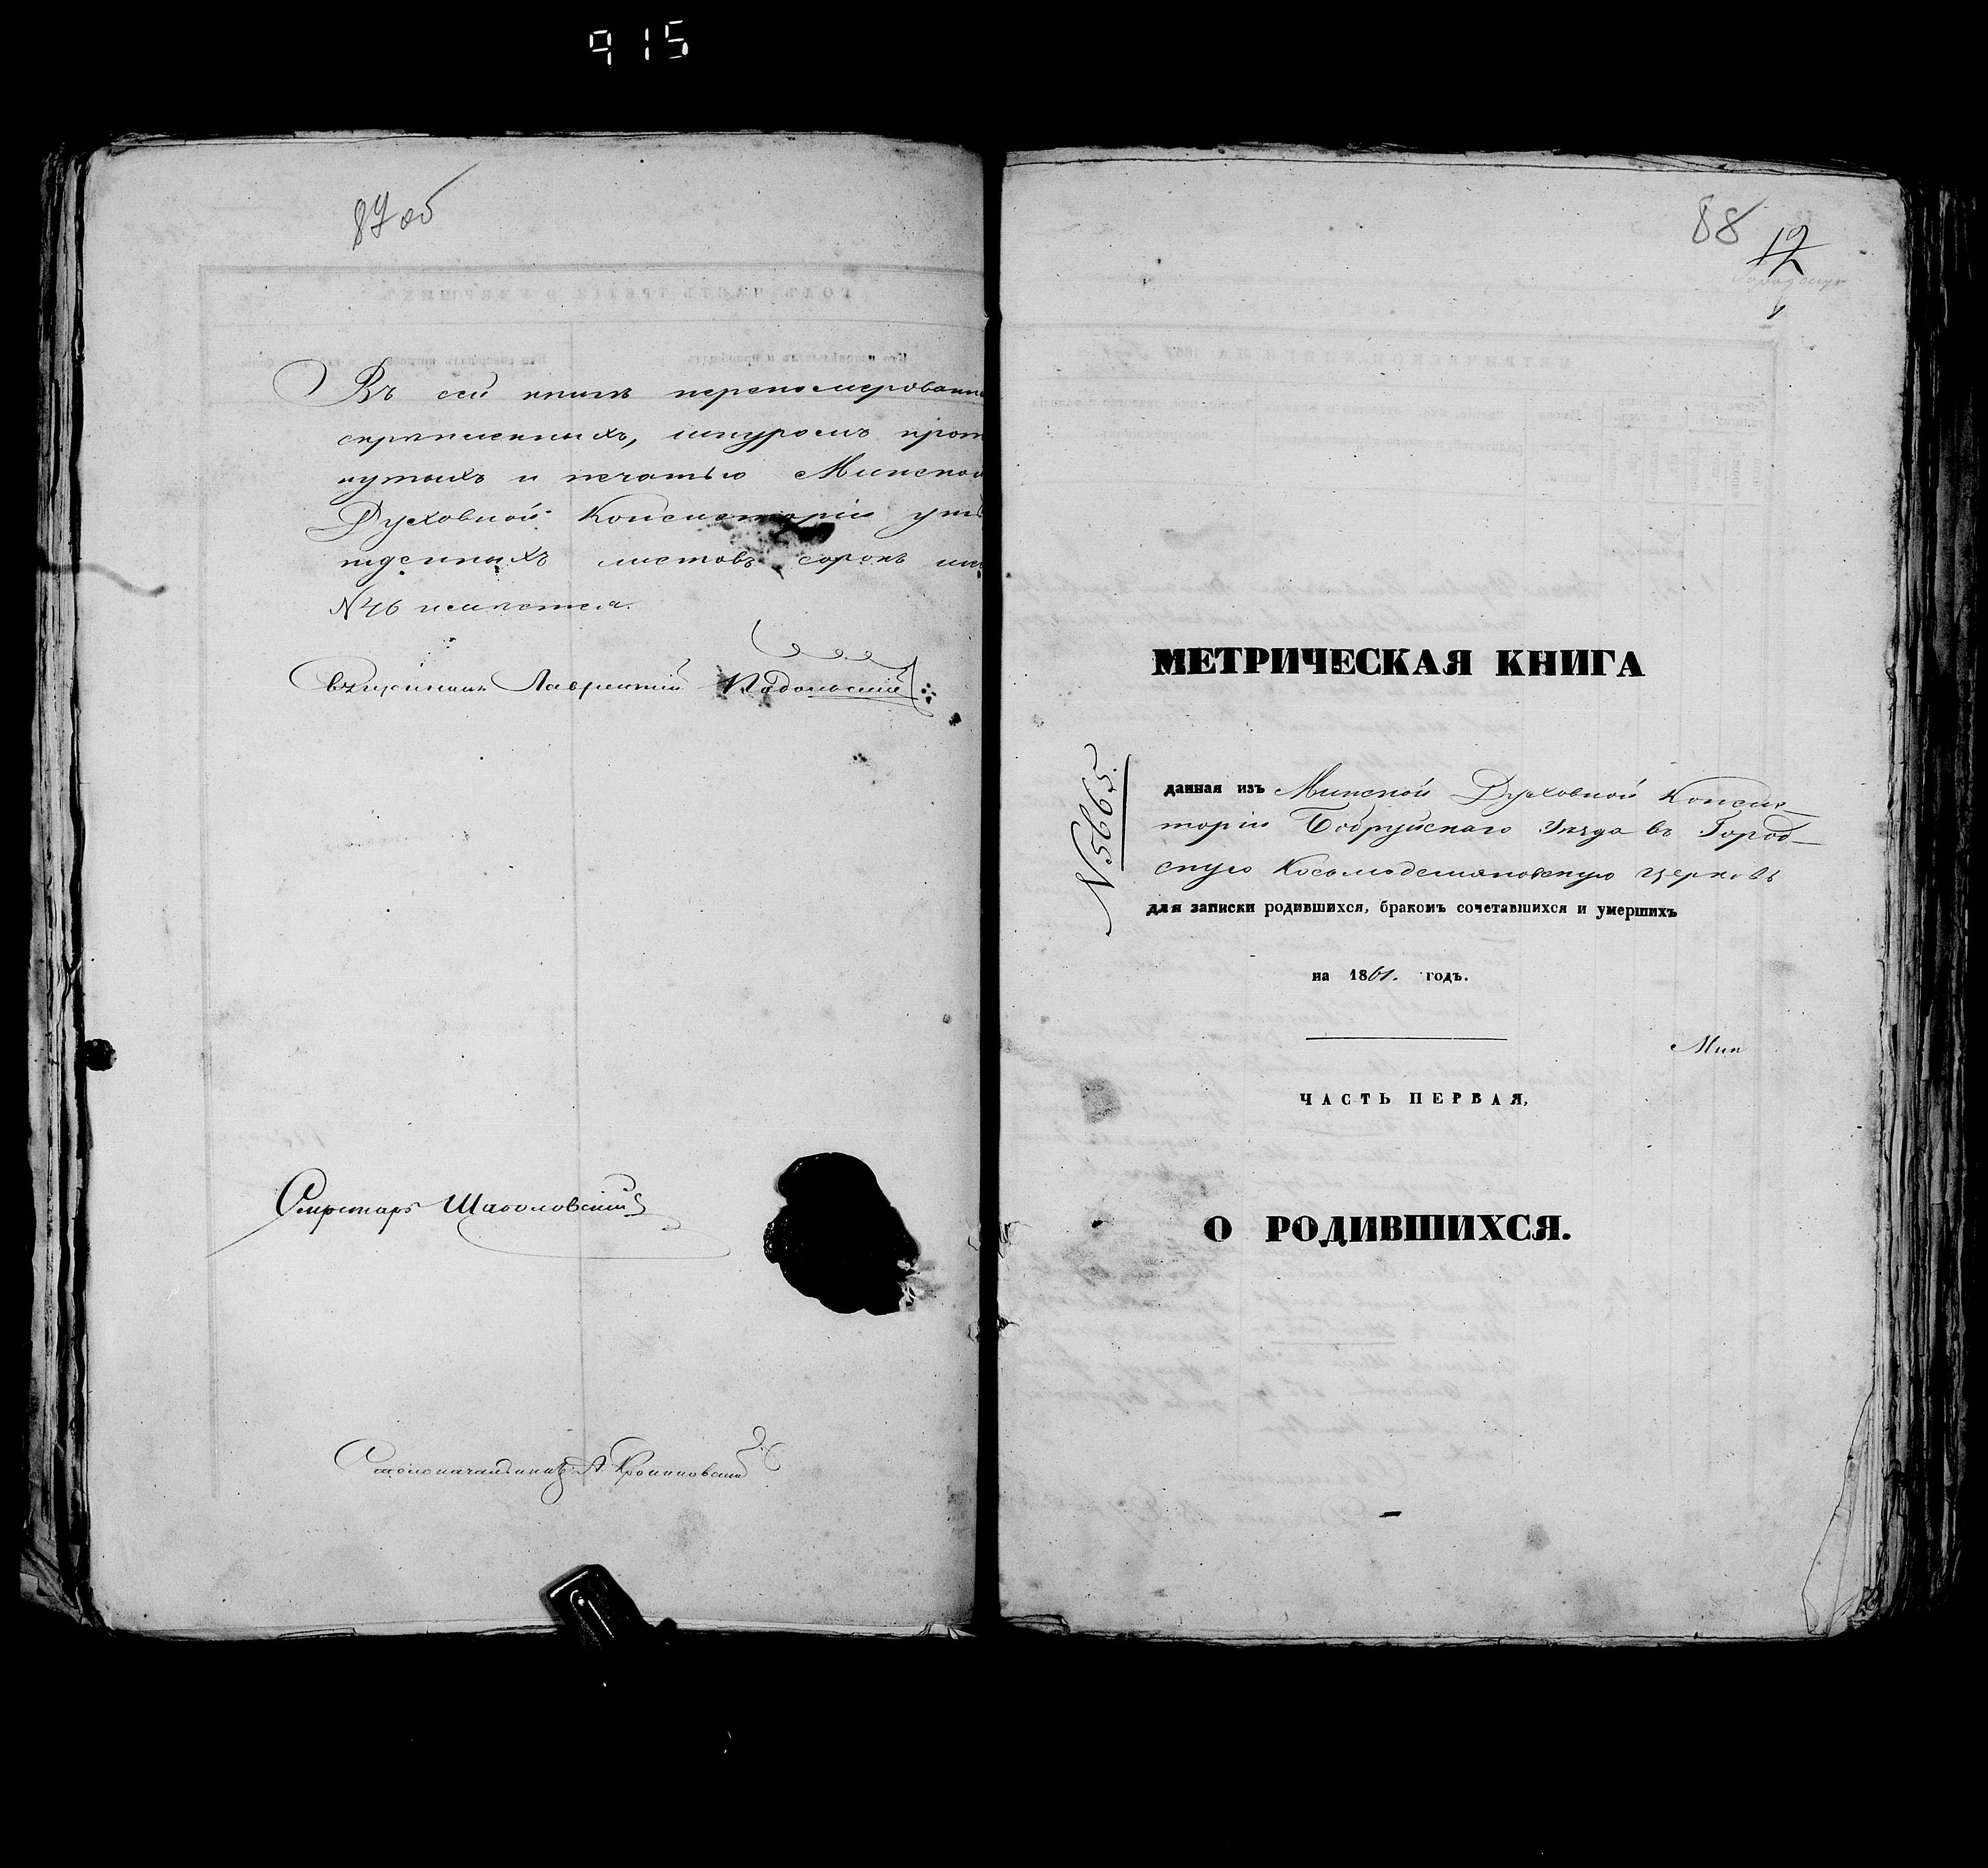 915
87 об
Въ сей книгѣ перенумерованн
скрѣпленныхъ, шнуромъ прош
нутыхъ и печатью Минской
Духовной Консисторіи утв
жденныхъ листовъ сорокъ
N 46
Лаврентій Подольскій
Секретарь Шаболовскій
Столоначальникъ А.
88
12
МЕТРИЧЕСКАЯ КНИГА
N 5665.
данная изъ Минской Духовной Консис-
торіи Бобруйскаго Уѣзда въ Город-
скую Косьмодемяновскую церковь
для записки родившихся, бракомъ сочетавшихся и умершихъ
на 1861. годъ.
Мин
ЧАСТЬ ПЕРВАЯ,
О РОДИВШИХСЯ.